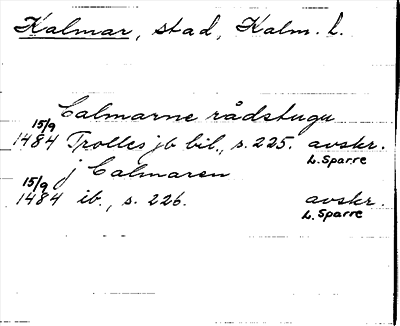 Kalmar, stad, Kalm. l.
Calmarne rådstugu
15/9
1484 Trolles jb bil., s. 225. avskr.
L. Sparre
j Calmaren
15/9
1484 ib., s. 226. avskr.
L. Sparre